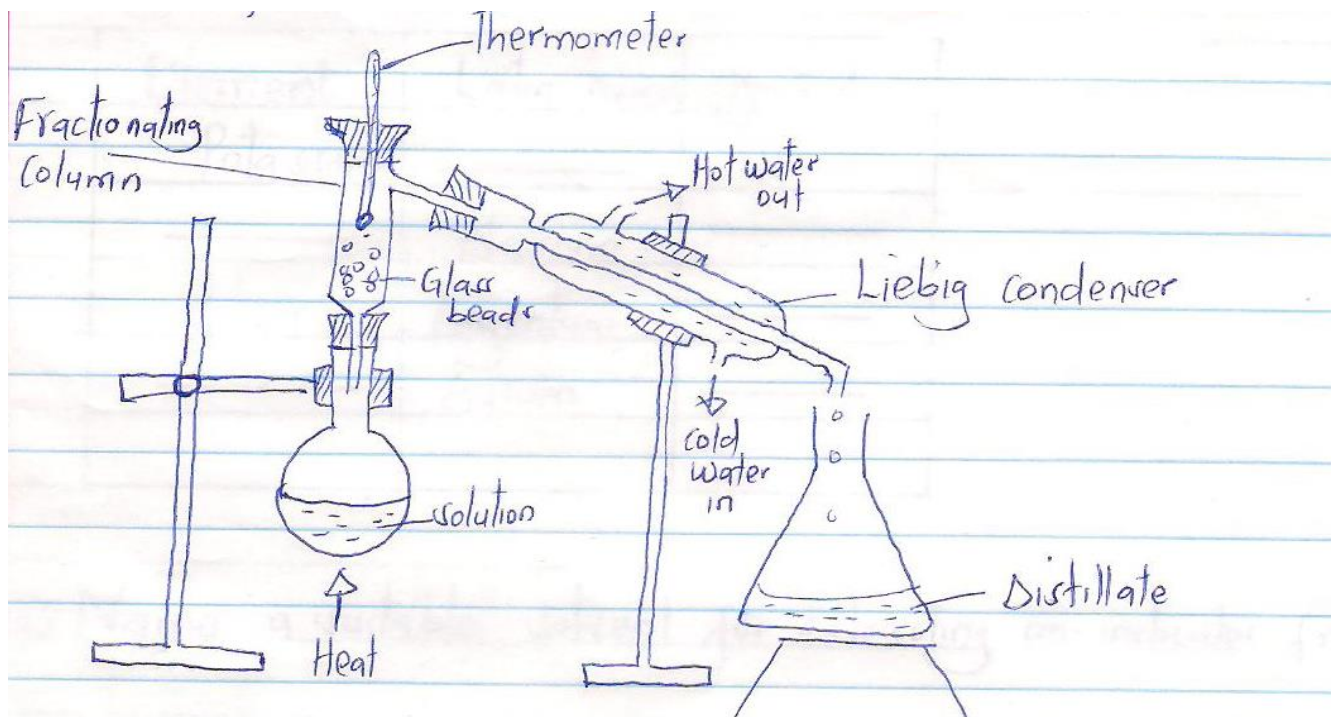 Thermometer
Fractionating
Column
Hot water
out
Glass
beads
Liebig condenser
Cold
water
in
solution
Distillate
Heat